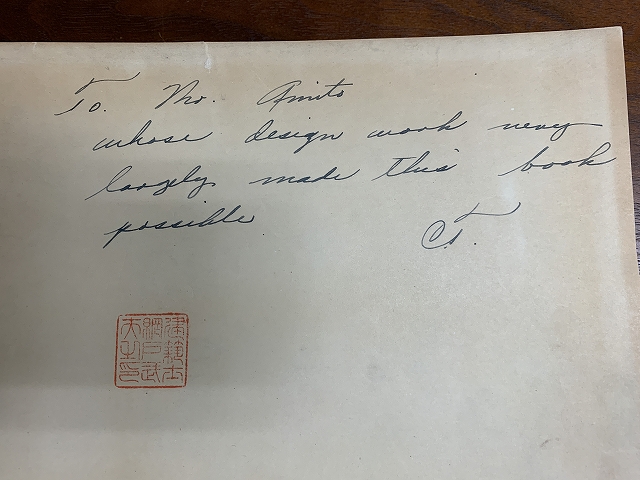 To. Mr. Amito
whose design work very
largely made this book
possible.
C.T.
建築士
網戸武
夫之印